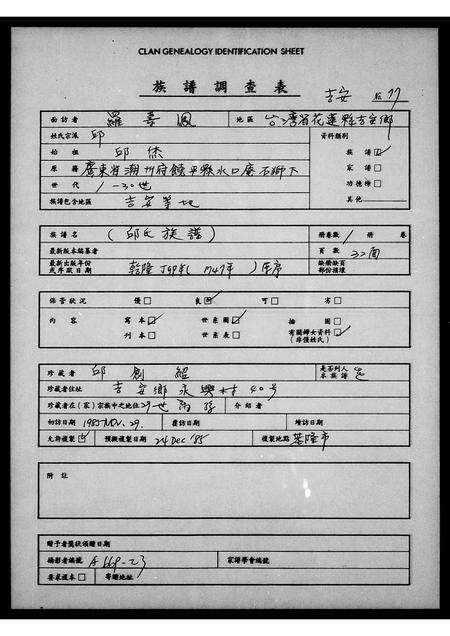 CLAN GENEALOGY IDENTIFICATION SHEET
族譜調查表
吉安 77
面訪者 羅 鳳 地區 台灣省花蓮縣吉安鄉
姓氏宗派 邱 資料類別
始祖 邱 族譜☑
原籍 廣東省潮州府饒平縣水口 石獅下 家譜□
世代 1-30世 功德榜□
族譜包含地區 吉安等地 其他
族譜名 (邱氏族譜) 冊卷數 1 冊 卷
最新版本編纂者 頁數 32面
最新出版年份或序跋日期 乾隆 年(1747年)序 缺冊缺頁部份損壞
保管狀況 優□ 良☑ 可□ 劣□
內容 寫本☑ 世系圖☑ 繪圖□
刊本□ 世系表□ 有關婦女資料☑(非僅姓氏)
珍藏者 邱創 是否列入本族譜 是
珍藏者住址 吉安鄉永興村40號
珍藏者在(家)宗族中之地位 29世 孫 介紹者
初訪日期 1985 NOV. 29. 覆訪日期 增訪日期
允許複製☑ 預擬複製日期 24 Dec '85 複製地點 基隆市
附註
贈予者獎狀頒贈日期
攝影者編號 A669-23 家譜學會編號
要求複本□ 寄贈地址